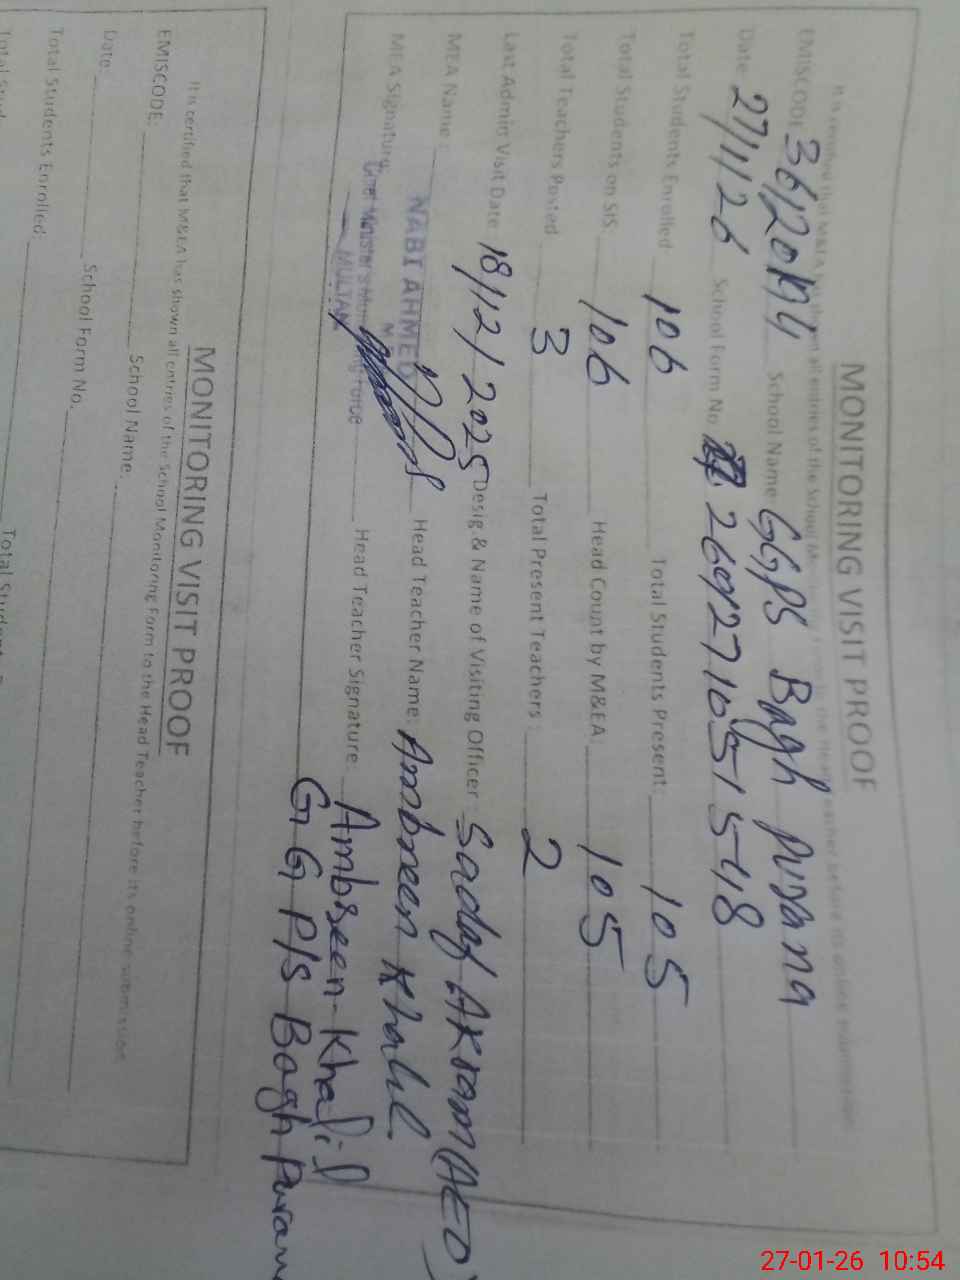 MONITORING VISIT PROOF
It is certified that M&EA has shown all entries of the School Monitoring Form to the Head Teacher before its online submission
EMISCODE: School Name: GGPS Bagh Purana
Date: 27/1/26 School Form No. 269271051548
Total Students Enrolled: 106 Total Students Present: 105
Total Students on SIS: 106 Head Count by M&EA: 105
Total Teachers Posted 3 Total Present Teachers: 2
Last Admin Visit Date: 18/12/2025 Desig.& Name of Visiting Officer: Sadaf Akram (AEO)
MEA Name: NABI AHMED Head Teacher Name: Ambreen Khalil
MEA Signature: Head Teacher Signature: Ambreen Khalil
Chief Minister's Monitoring Force
MULTAN
G G P/S Bagh Puran
MONITORING VISIT PROOF
It is certified that M&EA has shown all entries of the School Monitoring Form to the Head Teacher before its online submission
EMISCODE: School Name:
Date: School Form No.
Total Students Enrolled:
27-01-26 10:54